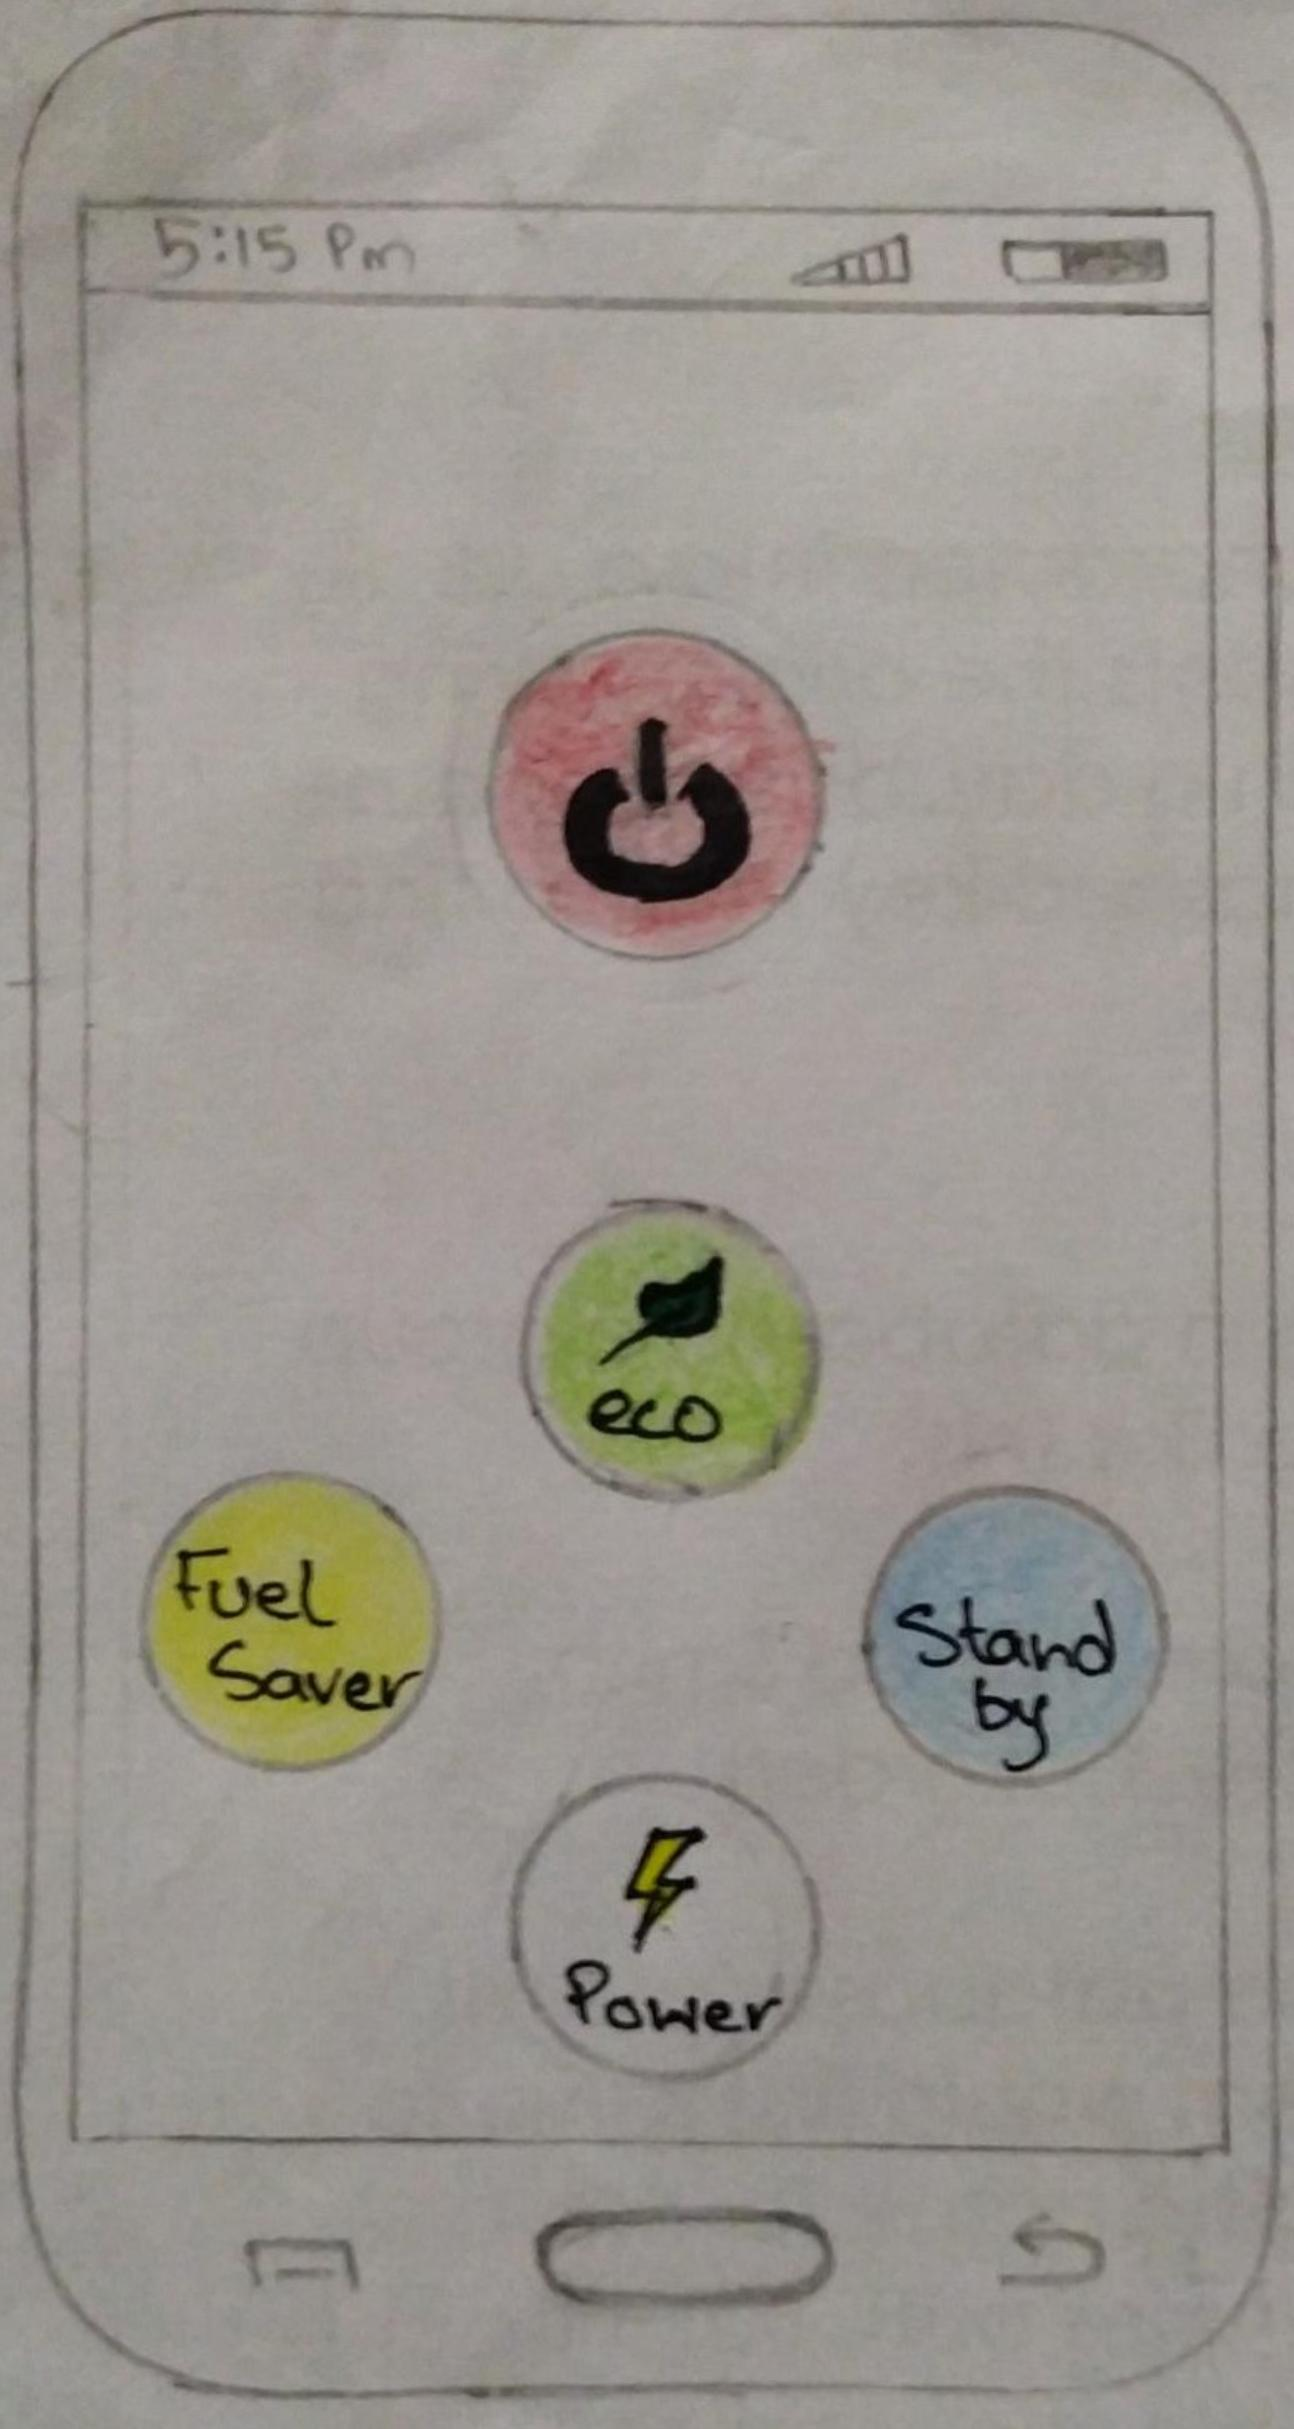 5:15 Pm
eco
Fuel
Saver
Stand
by
Power